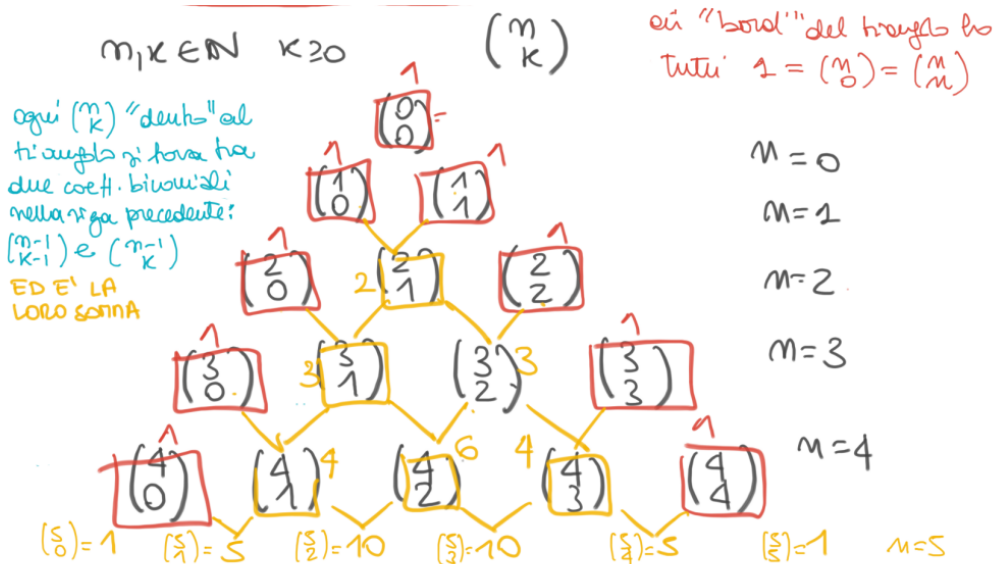 n, k ∈ ℕ k ≥ 0 (n k)
"bordi" del triangolo ho
tutti 1 = (n 0) = (n n)
ogni (n k) "dentro" al
triangolo si trova tra
due coeff. binomiali
nella riga precedente:
(n-1 k-1) e (n-1 k)
ED E' LA
LORO SOMMA
1
(0 0) =
n = 0
1 1
(1 0) (1 1)
n = 1
1 1
(2 0) 2 (2 1) (2 2)
n = 2
1 1
(3 0) 3 (3 1) (3 2) 3 (3 3)
n = 3
1 1
(4 0) (4 1) 4 (4 2) 6 4 (4 3) (4 4)
n = 4
(5 0) = 1 (5 1) = 5 (5 2) = 10 (5 3) = 10 (5 4) = 5 (5 5) = 1 n = 5